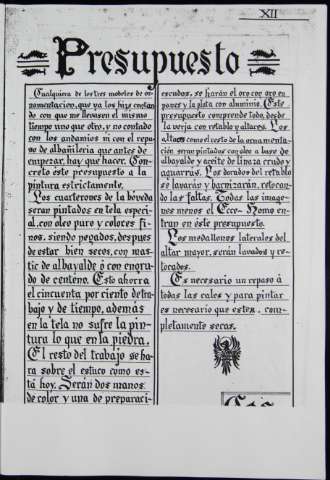 XII
Presupuesto
Cualquiera de los tres modelos de or-
namentacion, que ya los hize contan-
do con que me llevasen el mismo
tiempo uno que otro, y no contado
con los andamios ni con el repa-
so de albañileria que antes de
empezar, hay que hacer. Con-
creto este presupuesto a la
pintura estrictamente.
Los cuarterones de la bóveda
seran pintados en tela especi-
al, con oleo puro y colores fi-
nos, siendo pegados, despues
de estar bien secos, con mas-
tic de albayalde ó con engru-
do de centeno. Esto ahorra
el cincuenta por ciento de tra-
bajo y de tiempo, además
en la tela no sufre la pin-
tura lo que en la piedra.
El resto del trabajo se ha-
ra sobre el estuco como es-
tá hoy. Serán dos manos
de color y una de preparaci-
escudos, se harán el oro con oro en
panes y la plata con aluminio. Este
presupuesto comprende todo, desde
la verja con retablo y altares. Los
como el resto de la ornamenta-
ción seran pintados con oleo a base de
albayalde y aceite de linaza crudo y
aguarrás. Los dorados del retablo
se lavarán y barnizarán, retocan-
do las faltas. Todas las image-
nes menos el Ecce-Homo en-
tran en este presupuesto.
Los medallones laterales del
altar mayor, serán lavados y re-
tocados.
Es necesario un repaso á
todas las cales y para pintar
es necesario que esten com-
pletamente secas.